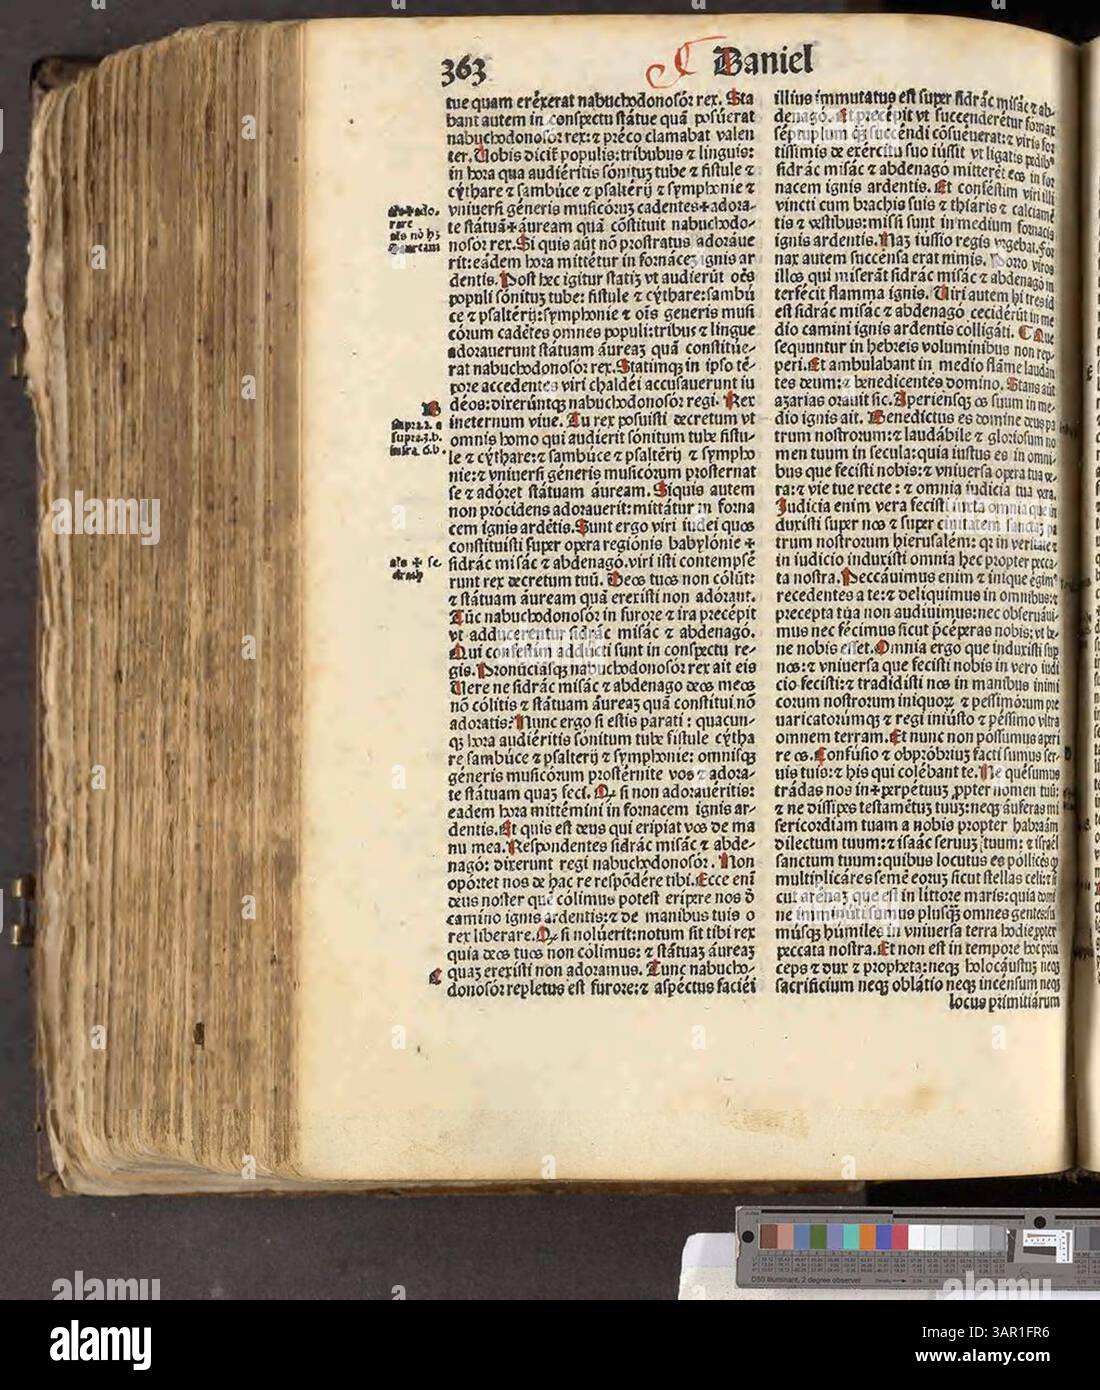 363
Daniel
tue quam eréxerat nabuchodonosór rex. Sta
bant autem in conspectu státue quā posúerat
nabuchodonosor rex: ⁊ préco clamabat valen
ter. Uobis dicit́ populis: tribubus ⁊ linguis:
in hora qua audiéritis sónituʒ tube ⁊ fistule ⁊
cýthare ⁊ sambúce ⁊ psaltérij ⁊ symphonie ⁊
vniuersi géneris musicóruʒ cadentes+adora-
te státuā+áuream quā cōstituit nabuchodo-
nosór rex. Si quis aūt nō prostratus adoráue
rit: eádem hora mittétur in fornáceʒ ignis ar
dentis. Post hec igitur statiʒ vt audierūt oēs
populi sónituʒ tube: fistule ⁊ cýthare: sambú
ce ⁊ psaltérij: symphonie ⁊ oīs generis musi
córum cadētes omnes populi: tribus ⁊ lingue
adorauerunt státuam áureaʒ quā constitúe-
rat nabuchodonosór rex. Statimqʒ in ipso té-
pore accedentes viri chaldéi accusauerunt iu
déos: dixerúntqʒ nabuchodonosór regi. Rex
ineternum viue. Tu rex posuisti decretum vt
omnis homo qui audierit sónitum tube fistu-
le ⁊ cýthare: ⁊ sambúce ⁊ psaltérij ⁊ sympho
nie: ⁊ vniuersi géneris musicórum prosternat
se ⁊ adóret státuam áuream. Siquis autem
non prócidens adorauerit: mittátur in forna
cem ignis ardētis. Sunt ergo viri iudei quos
constituisti super opera regiónis babylónie +
sidrác misác ⁊ abdenágo. viri isti contempsé
runt rex decretum tuū. Deos tuos non cólūt:
⁊ státuam áuream quā erexisti non adórant.
Tūc nabuchodonosór in furore ⁊ ira precépit
vt adducerentur sidrác misác ⁊ abdenagó.
Qui confestim addúcti sunt in conspectu re-
gis. Pronūciásqʒ nabuchodonosór rex ait eis
Uere ne sidrác misác ⁊ abdenago deos meos
nō cólitis ⁊ státuam áureaʒ quā constitui nō
adoratis? Nunc ergo si estis parati: quacun-
qʒ hora audiéritis sónitum tube fistule cýtha
re sambúce ⁊ psalterij ⁊ symphonie: omnisqʒ
géneris musicórum prostérnite vos ⁊ adora-
te státuam quaʒ feci. Qr si non adoraueritis:
eadem hora mittémini in fornacem ignis ar-
dentis. Et quis est deus qui eripiat vos de ma
nu mea. Respondentes sidrác misác ⁊ abde-
nagó: dixerunt regi nabuchodonosór. Non
opórtet nos de hac re respōdére tibi. Ecce enī
deus noster quē cólimus potest eripere nos d̄
camino ignis ardentis: ⁊ de manibus tuis o
rex liberare. Qr si nolúerit: notum sit tibi rex
quia deos tuos non cólimus: ⁊ státuaʒ áureaʒ
quaʒ erexisti non adoramus. Tunc nabucho-
donosór repletus est furore: ⁊ aspéctus faciéi
illius immutatus est super sidrác misác ⁊ ab-
denagó. Et precépit vt succenderétur fornax
séptuplum succéndi cōsueuerat: ⁊ viris for
tissimis de exércitu suo iússit vt ligatis pedibʒ
sidrác misác ⁊ abdenágo mitterēt eos in for
nacem ignis ardentis. Et conféstim viri illi
vincti cum brachis suis ⁊ thiáris ⁊ calciamē
tis ⁊ vestibus: missi sunt in medium fornacis
ignis ardentis. Naʒ iussio regis vrgebat. For
nax autem succénsa erat nimis. Porro viros
illos qui miserāt sidrác misác ⁊ abdenagó in
terfécit flamma ignis. Uiri autem hi tres id
est sidrác misác ⁊ abdenagó cecidérūt in me
dio camini ignis ardentis colligáti. Que
sequuntur in hebreis voluminibus non rep-
peri. Et ambulabant in medio flāme laudan
tes deum: ⁊ benedicentes domino. Stans aūt
aʒarias orauit sic. Aperiensqʒ os suum in me-
dio ignis ait. Benedictus es domine deus pa
trum nostrorum: ⁊ laudábile ⁊ gloriosum no
men tuum in secula: quia iustus es in omni-
bus que fecisti nobis: ⁊ vniuersa opera tua ve-
ra: ⁊ vie tue recte: ⁊ omnia iudicia tua vera.
Judicia enim vera fecisti iuxta omnia que in
duxisti super nos ⁊ super ciuitatem sanctaʒ pa
trum nostrorum hierusalém: qr in veritate ⁊
in iudicio induxisti omnia hec propter pecca-
ta nostra. Peccáuimus enim ⁊ inique égimʼ
recedentes a te: ⁊ deliquimus in omnibus: ⁊
precepta tua non audiuimus: nec obseruáui-
mus nec fécimus sicut p̄céperas nobis: vt be-
ne nobis esset. Omnia ergo que induxisti sup
nos: ⁊ vniuersa que fecisti nobis in vero iudi
cio fecisti: ⁊ tradidisti nos in manibus inimi
corum nostrorum iniquoꝝ ⁊ pessimórum pre
uaricatorúmqʒ ⁊ regi iniústo ⁊ péssimo vltra
omnem terram. Et nunc non póssumus aperi
re os. Confúsio ⁊ obpróbriuʒ facti sumus ser-
uis tuis: ⁊ his qui colébant te. Ne quésumus
trádas nos in+perpétuuʒ ꝓpter nomen tuū:
⁊ ne díssipes testamétuʒ tuuʒ: neqʒ áuferas mi
sericordiam tuam a nobis propter habraám
dilectum tuum: ⁊ isaác seruuʒ tuum: ⁊ israél
sanctum tuum: quibus locutus es póllicēs qʼ
multiplicáres semē eoruʒ sicut stellas celi: ⁊ si
cut arénaʒ que est in littore maris: quia domi
ne imminúti sumus plusqʒ omnes gentes: su
músqʒ húmiles in vniuersa terra hodie ꝓpter
peccata nostra. Et non est in tempore hoc prin
ceps ⁊ dux ⁊ propheta: neqʒ holocáustuʒ neqʒ
sacrificium neqʒ oblátio neqʒ incénsum neqʒ
locus primitiárum
als+ado-
rare
als nō hʒ
B
supra.2.a
supra.3.b.
infra.6.b.
als + se
drach
C
D50 Illuminant, 2 degree observer
Density
alamy
Image ID: 3AR1FR6
www.alamy.com